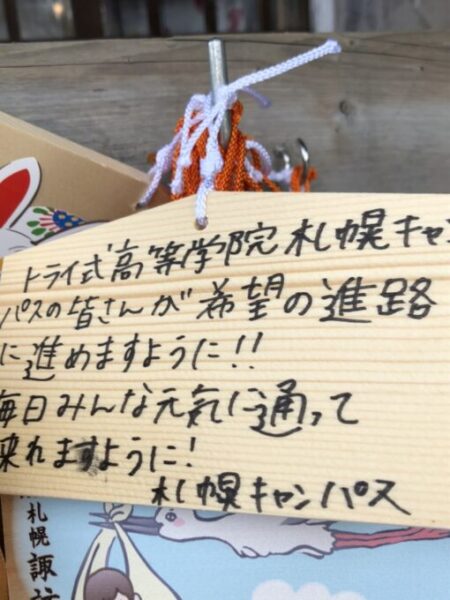 トライ式高等学院札幌キャン
パスの皆さんが希望の進路
に進めますように!!
毎日みんな元気に通って
来れますように!
札幌キャンパス
札幌諏訪